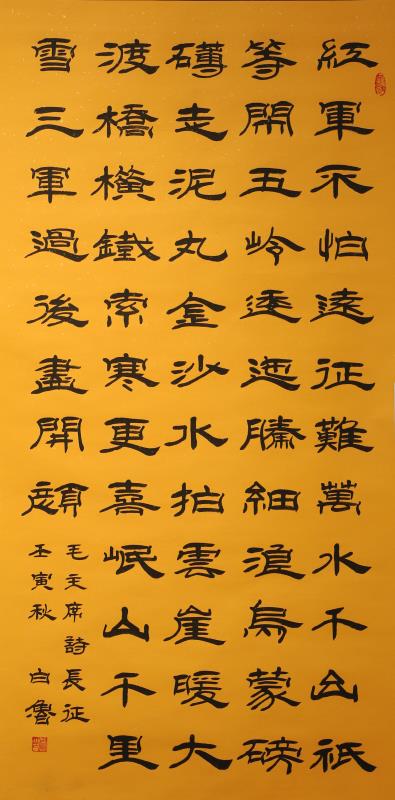 紅軍不怕遠征難萬水千山祇
等閑五岭逶迤騰細浪烏蒙磅
礡走泥丸金沙水拍雲崖暖大
渡橋橫鐵索寒更喜岷山千里
雪三軍過後盡開顏
毛主席詩長征
壬寅秋 白魯